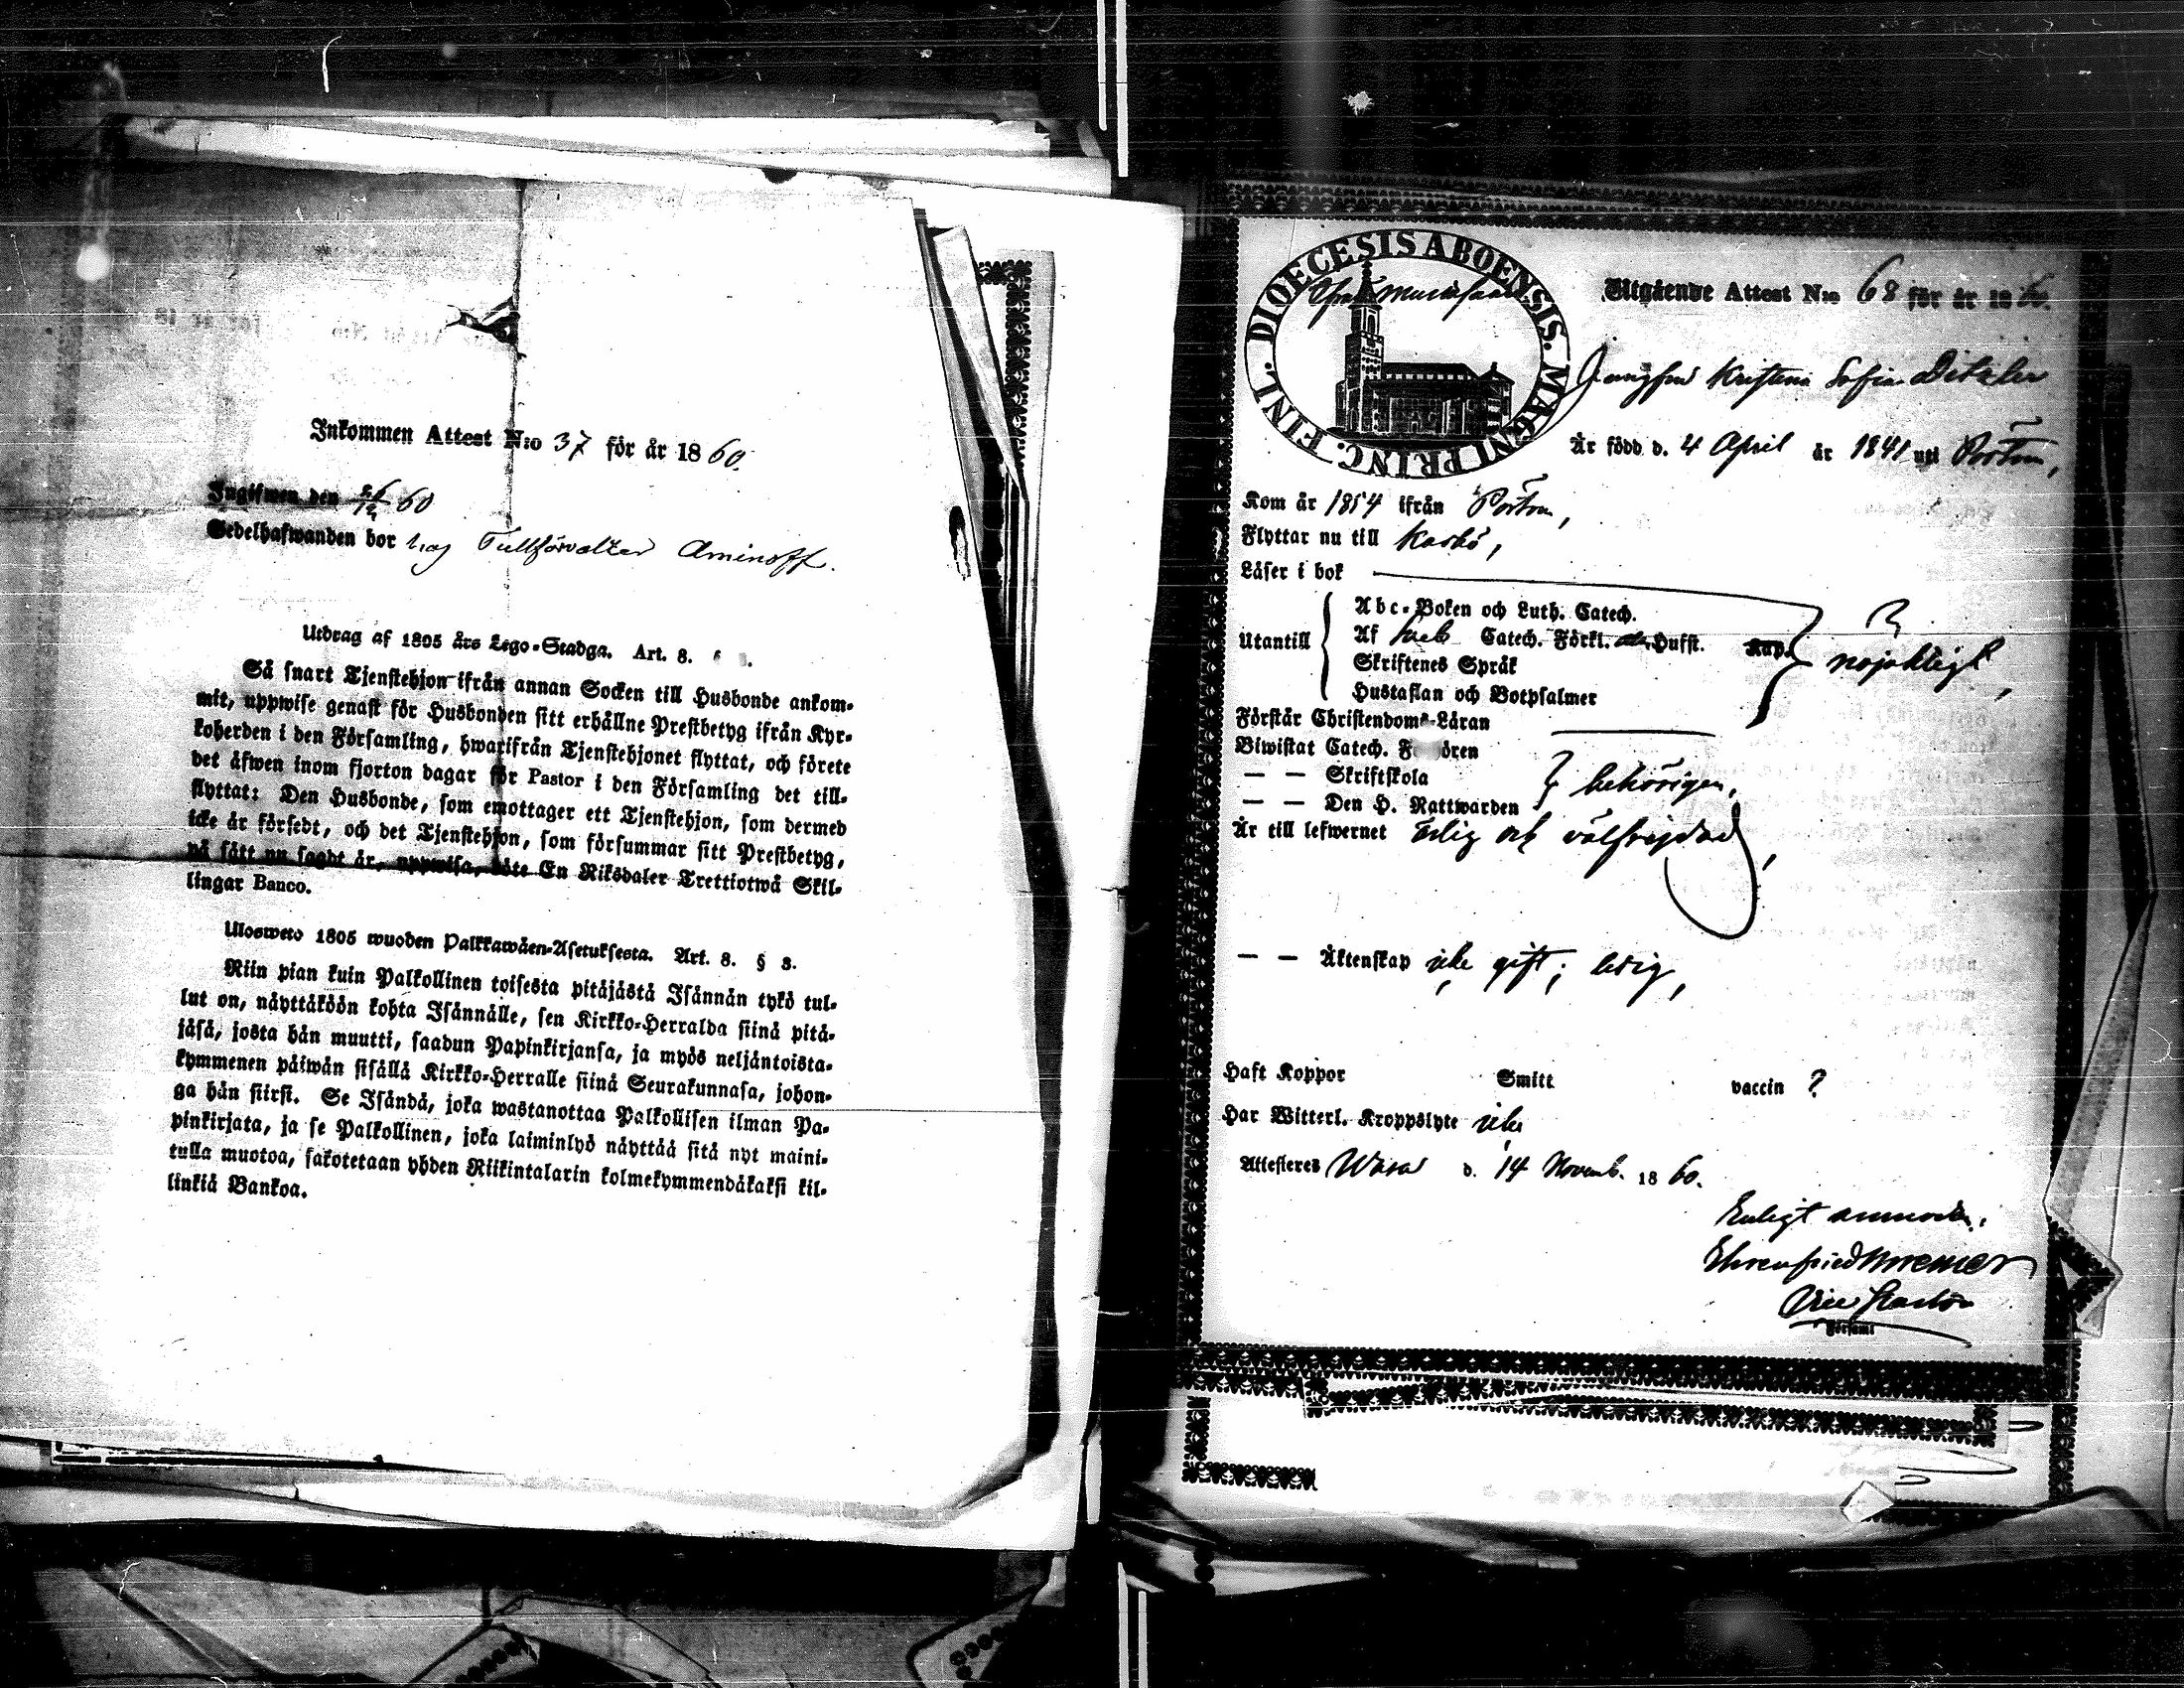 Inkommen Attest N:o 37 för år 1860.
Ingifwen den 26/12 60
Sedelhafwanden bor hos Tullförvalter Aminoff.
Utdrag af 1805 års Lego-Stadga. Art. 8.
Så snart Tjenstehjon ifrån annan Socken till Husbonde ankom-
mit, uppwise genast för Husbonden sitt erhållne Prestbetyg ifrån Kyr-
koherden i den Församling, hwarifrån Tjenstehjonet flyttat, och förete
det äfwen inom fjorton dagar för Pastor i den Församling det till-
flyttat: Den Husbonde, som emottager ett Tjenstehjon, som dermed
icke är försedt, och det Tjenstehjon, som försummar sitt Prestbetyg,
på sätt nu sagdt är, uppwisa, böte En Riksdaler Trettiotwå Skil-
lingar Banco.
Ulosweto 1805 wuoden Palkkawäen-Asetuksesta. Art. 8. § 3.
Niin pian kuin Palkollinen toisesta pitäjästä Isännän tykö tul-
lut on, näyttäköön kohta Isännälle, sen Kirkko-Herralda siinä pitä-
jäsä, josta hän muutti, saadun Papinkirjansa, ja myös neljäntoista-
kymmenen päiwän sisällä Kirkko-Herralle siinä Seurakunnasa, johon-
ga hän siirsi. Se Isändä, joka wastanottaa Palkollisen ilman Pa-
pinkirjata, ja se Palkollinen, joka laiminlyö näyttää sitä nyt maini-
tulla muotoa, sakotetaan yhden Riikintalarin kolmekymmendäkaksi kil-
linkiä Bankoa.
DIOECESIS ABOENSIS. MAGNI PRINC. FINL.
Utgående Attest N:o 68 för år 1860.
Jungfru Kristina Sofia
Är född d. 4 April år 1841 uti Pörtom,
Kom år 1854 ifrån Pörtom,
Flyttar nu till Kaskö,
Läser i bok
Utantill
Abc-Boken och Luth. Catech.
Af Sveb Catech. Förkl. Hufst. Kap.
Skriftenes Språk
Hustaflan och Botpsalmer
nöjaktigt,
Förstår Christendoms-Läran
Biwistat Catech. Förhören
— — Skriftskola
— — Den H. Nattwarden
behörigen,
Är till lefwernet ärlig och välfrejdad,
— — Äktenskap icke gift; ledig,
Haft Koppor Smitt vaccin ?
Har Witterl. Kroppslyte icke
Attesteres Wasa d. 14 Novemb. 1860.
Enligt
Ehrenfried
Vice Pastor
Församl